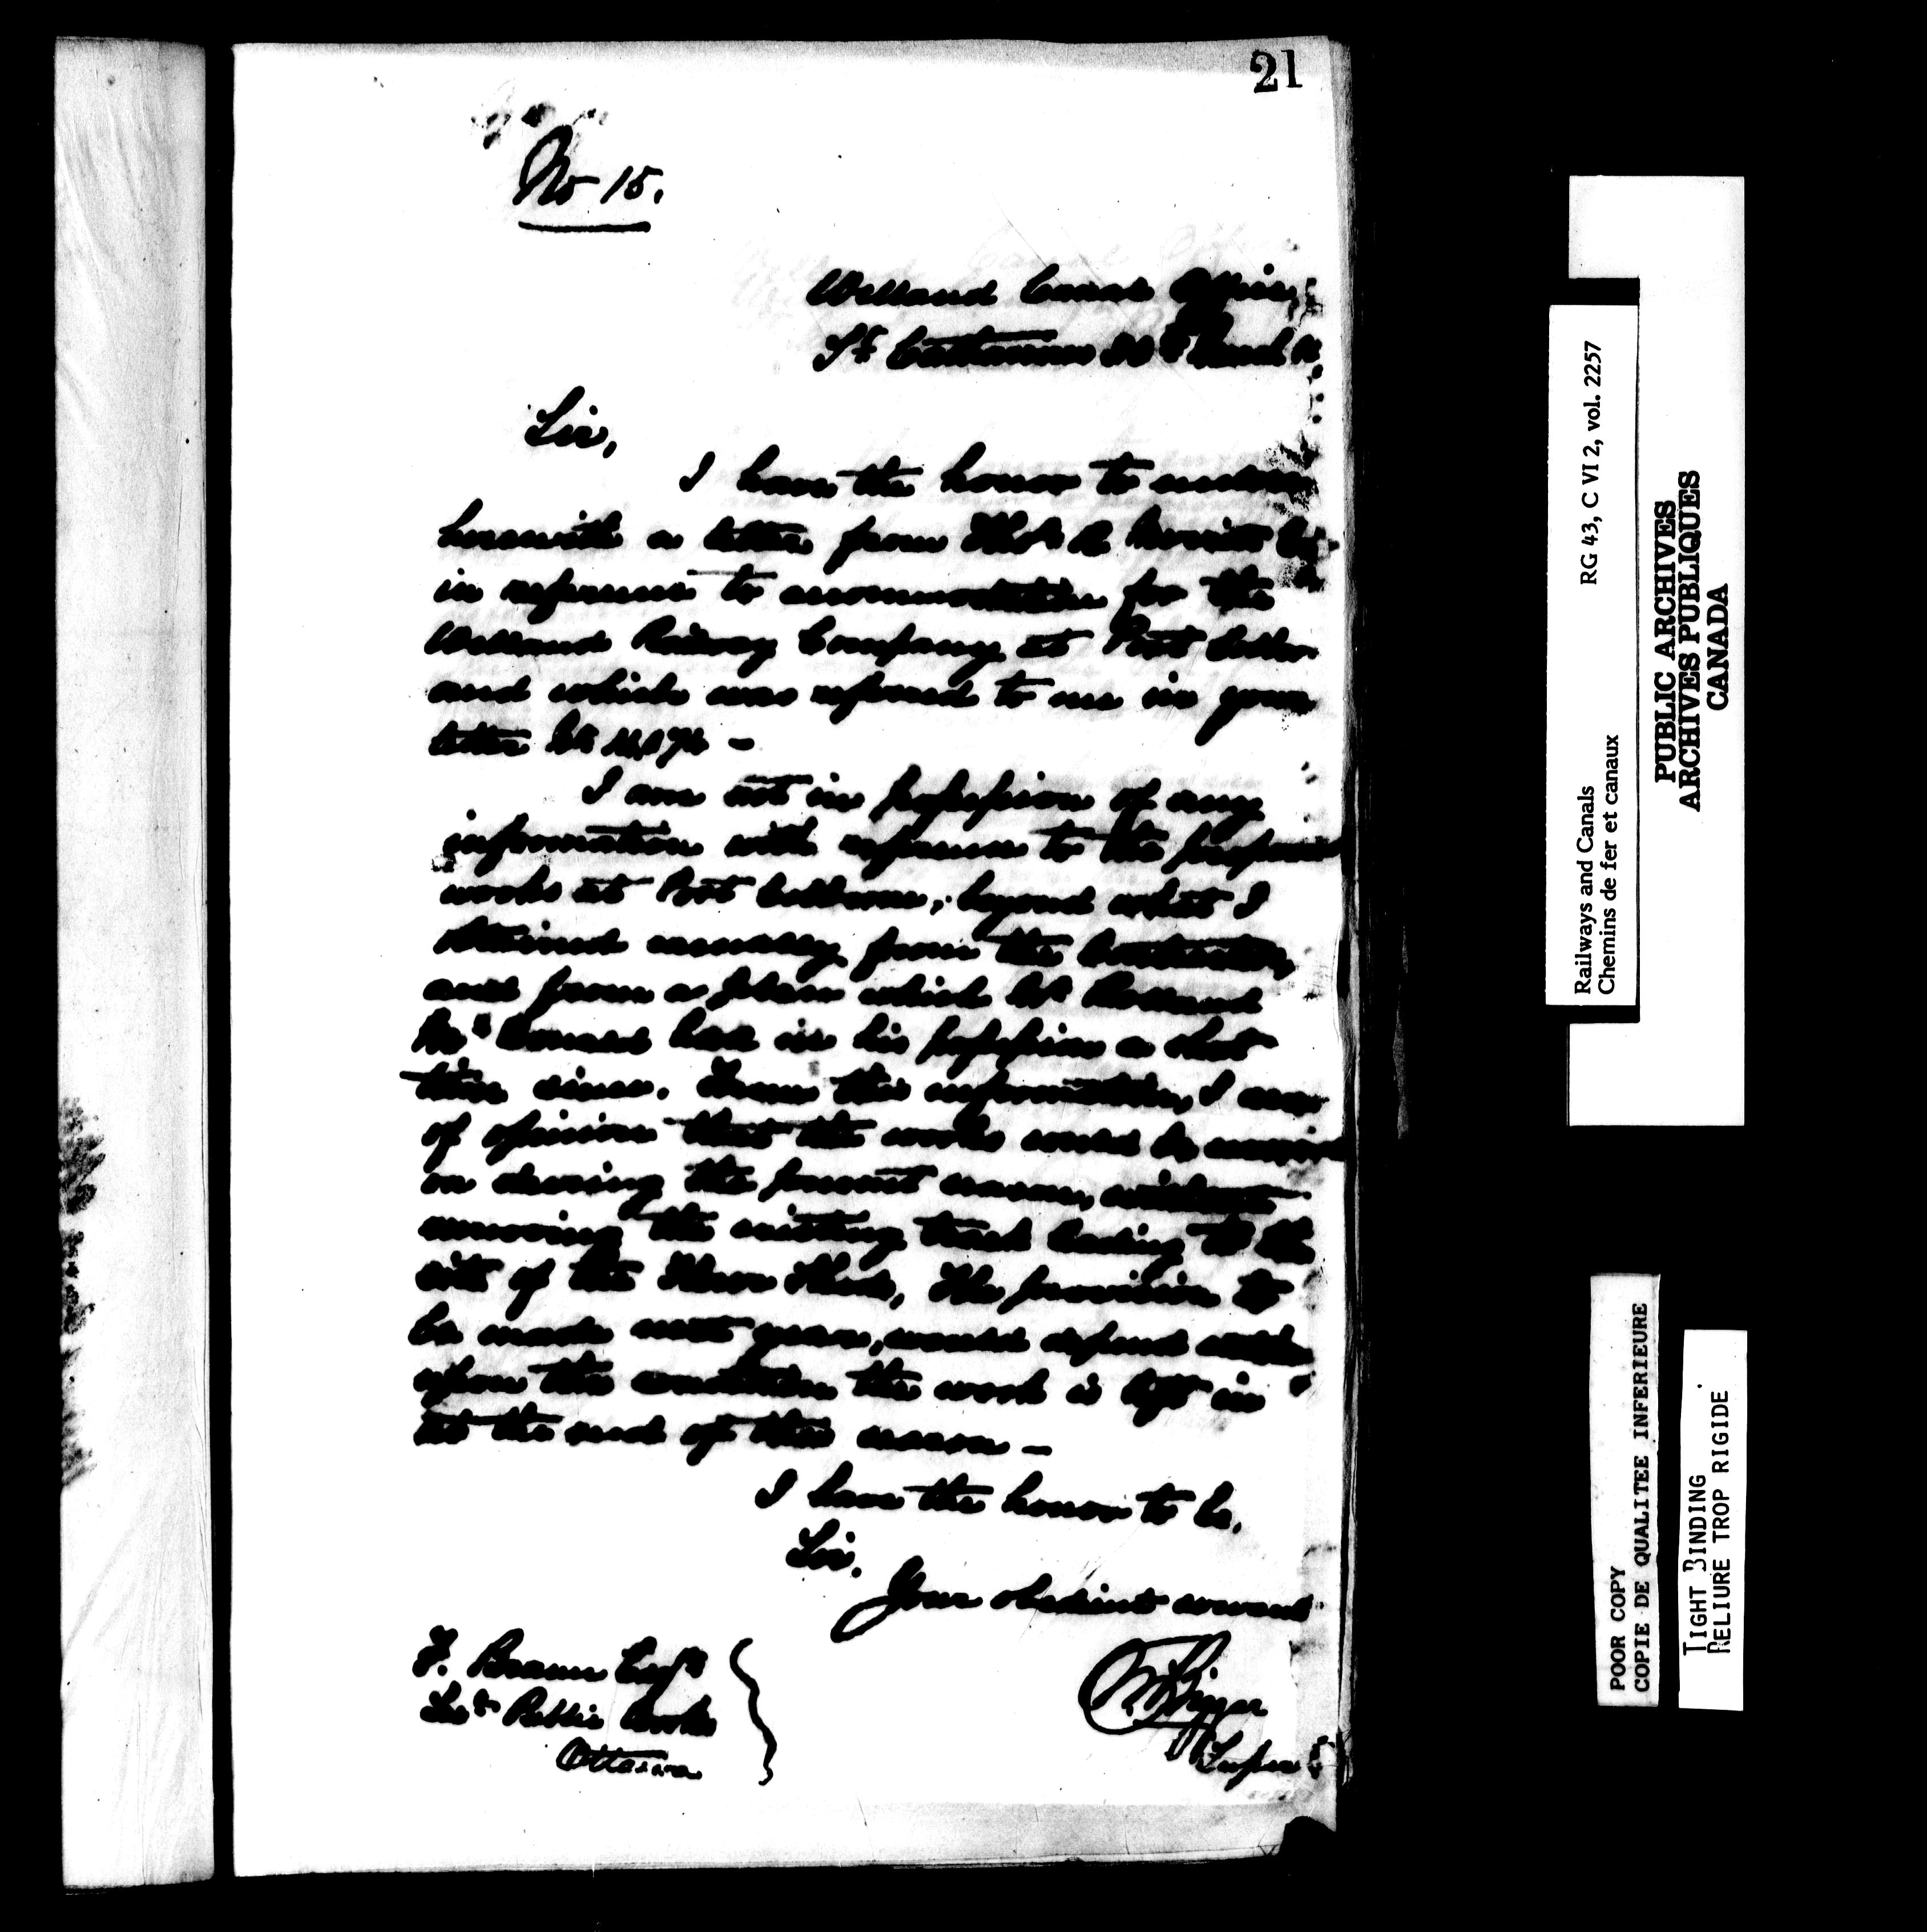 21
No 15.
Welland Canal Office,
St Catharines March
Sir,
I have the honor to return
herewith a letter from Thos R Merritt Esq
in reference to accommodation for the
Welland Railway Company at Port Colborne
and which was referred to me in your
letter No
I am not in possession of any
information with reference to the proposed
works at Port Colborne, beyond what I
obtained casually from the Contractor,
and from a plan which Mr
Mc had in his possession a short
time since. From this information, I am
of opinion that the works could be carried
on during the present season, without
removing the existing track leading to the
site of the . The provision to
be made next year, would depend
upon the condition the work is left in
at the end of this season —
I have the honor to be,
Sir.
Your obedient servant
F. Braun Esqr
Secy Public Works
Ottawa
Super
Railways and Canals RG 43, C VI 2, vol. 2257
Chemins de fer et canaux
PUBLIC ARCHIVES
ARCHIVES PUBLIQUES
CANADA
POOR COPY
COPIE DE QUALITEE INFERIEURE
TIGHT BINDING
RELIURE TROP RIGIDE